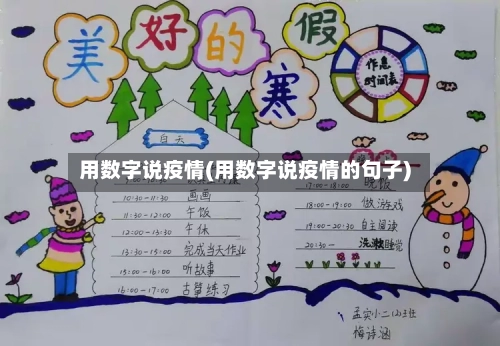 美好的寒假
作息
时间表
白天
用数字说疫情(用数字说疫情的句子)
10:30-11:30 画画
11:30-12:00 午饭
12:00-13:30 午休
13:30-15:00 完成当天作业
15:00-16:00 听故事
16:00-17:00 古筝练习
17:00-18:00 晚饭
18:00-19:00 做游戏
19:00-20:30 自主阅读
20:30- 洗漱睡觉
梅诗涵